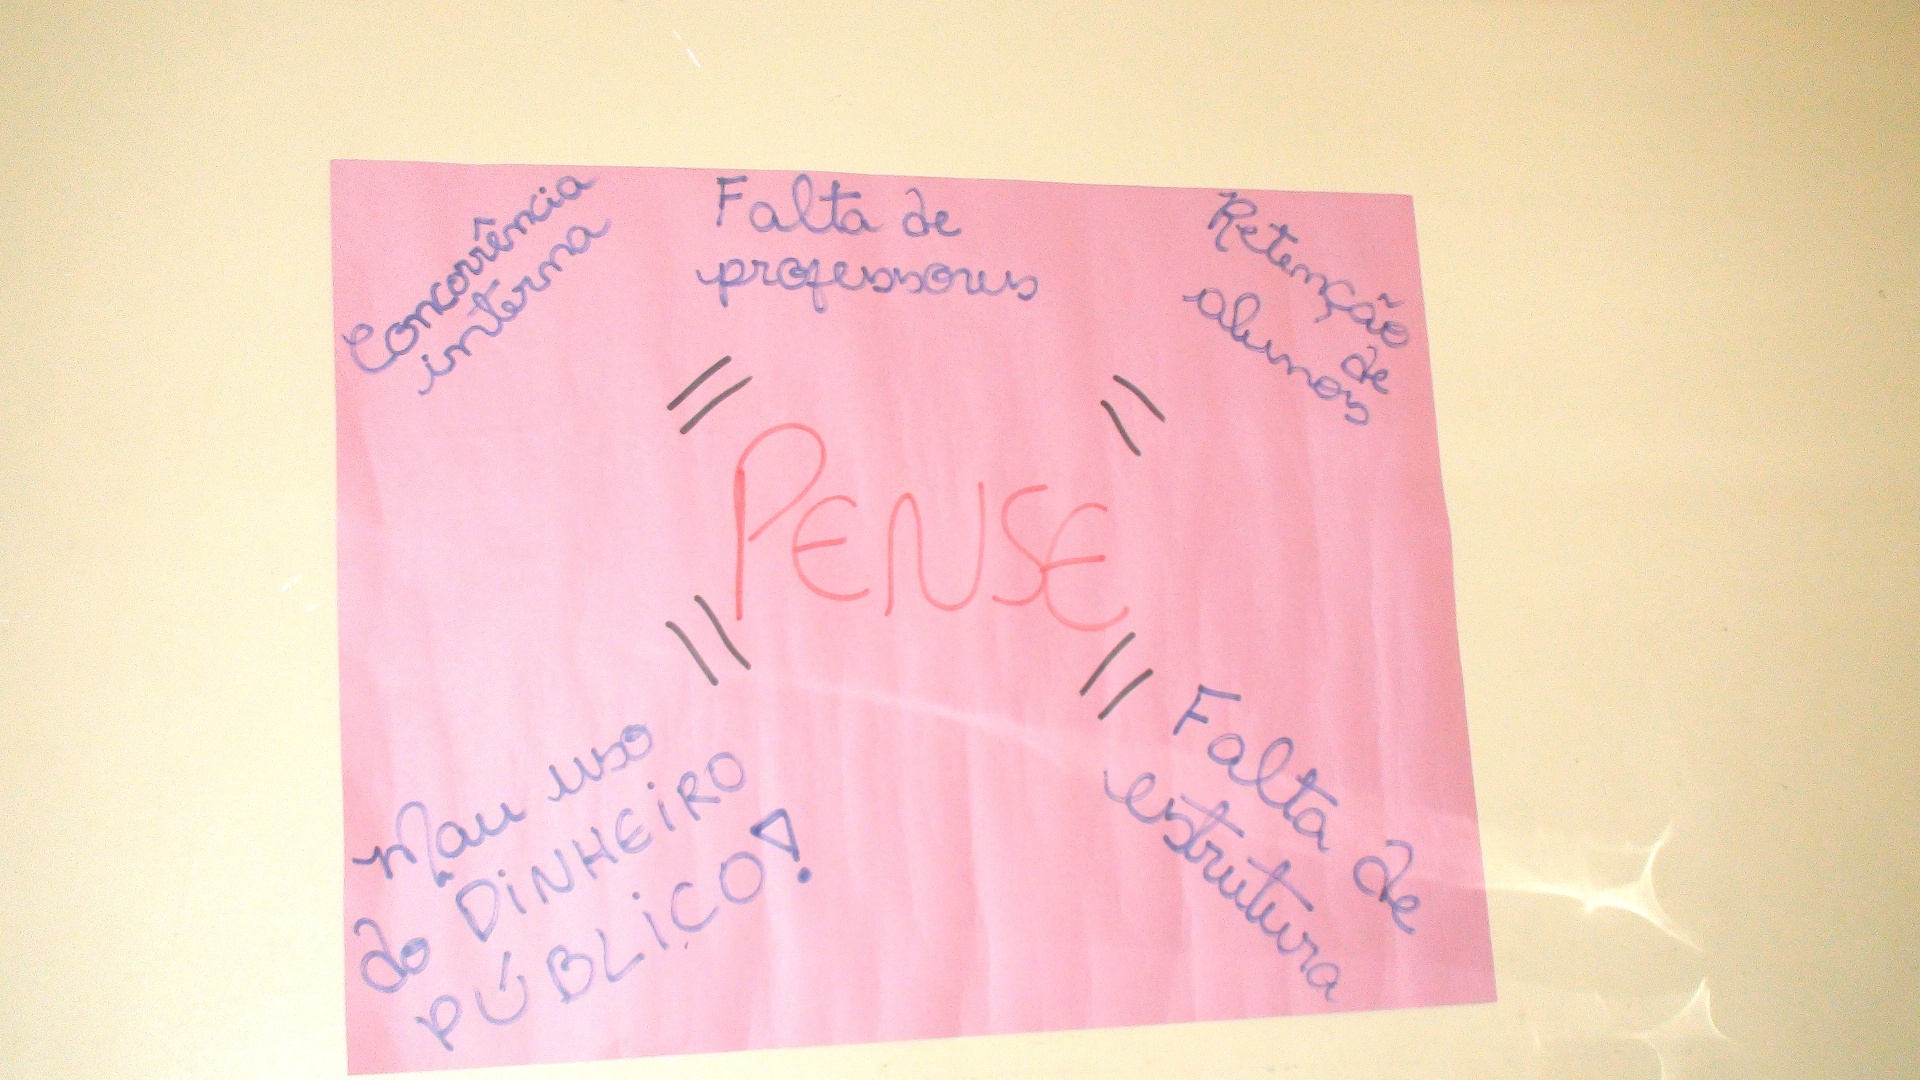 Concorrência
interna
Falta de
professores
Retenção
de
alunos
PENSE
Mau uso
do DINHEIRO
PÚBLICO!
Falta de
estrutura